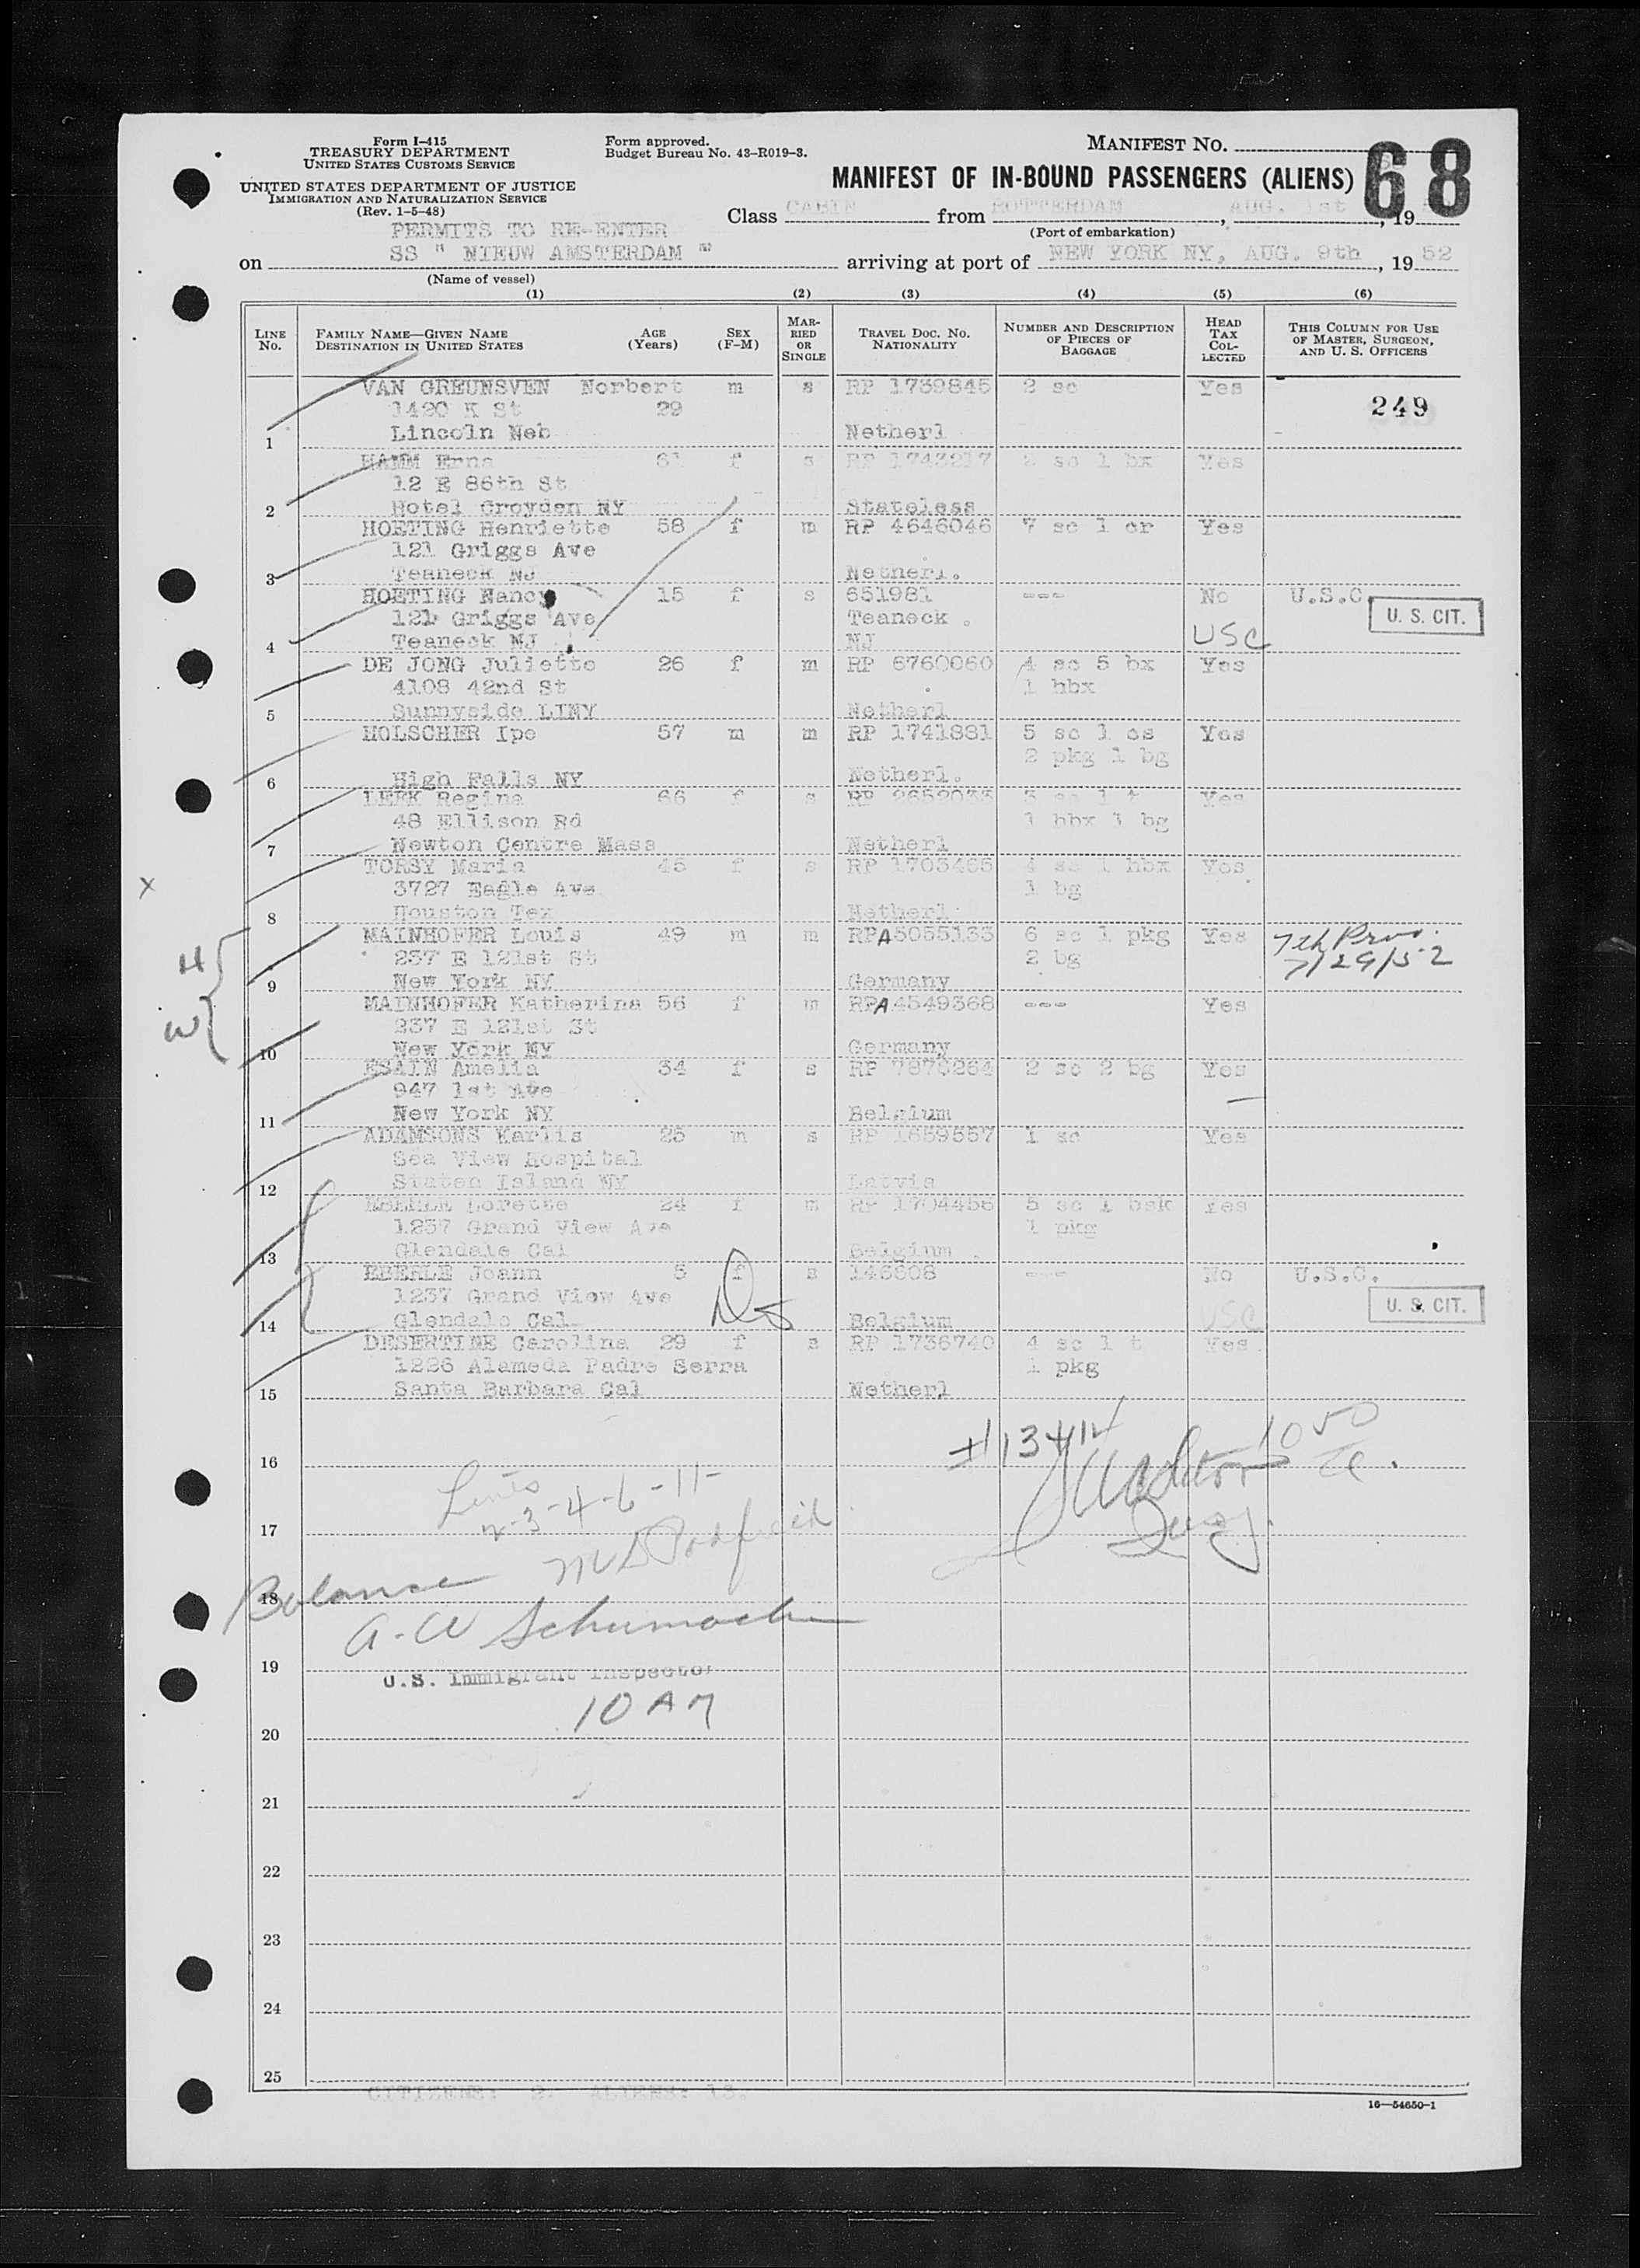 Form I-415
TREASURY DEPARTMENT
UNITED STATES CUSTOMS SERVICE
UNITED STATES DEPARTMENT OF JUSTICE
IMMIGRATION AND NATURALIZATION SERVICE
(Rev. 1-5-48)
Form approved.
Budget Bureau No. 43-R019-3.
MANIFEST No.
68
MANIFEST OF IN-BOUND PASSENGERS (ALIENS)
Class CABIN from ROTTERDAM, AUG. 1st, 19
(Port of embarkation)
PERMITS TO RE-ENTER
on SS " NIEUW AMSTERDAM " arriving at port of NEW YORK NY, AUG. 9th, 1952
(Name of vessel)
(1) (2) (3) (4) (5) (6)
LINE No. FAMILY NAME—GIVEN NAME DESTINATION IN UNITED STATES AGE (Years) SEX (F-M) MARRIED OR SINGLE TRAVEL DOC. NO. NATIONALITY NUMBER AND DESCRIPTION OF PIECES OF BAGGAGE HEAD TAX COLLECTED THIS COLUMN FOR USE OF MASTER, SURGEON, AND U. S. OFFICERS
VAN GREUNSVEN Norbert m s RP 1739845 2 sc Yes
1420 K St 29 249
1 Lincoln Neb Netherl
HAMM Erna 61 f s RP 1743217 2 sc 1 bx Yes
12 E 86th St
2 Hotel Croyden NY Stateless
HOETING Henriette 58 f m RP 4646046 7 sc 1 cr Yes
121 Griggs Ave
3 Teaneck NJ Netherl.
HOETING Nancy 15 f s 651981 --- No U.S.C.
121 Griggs Ave Teaneck U. S. CIT.
4 Teaneck NJ NJ USC
DE JONG Juliette 26 f m RP 6760060 4 sc 5 bx Yes
4108 42nd St 1 hbx
5 Sunnyside LINY Netherl
HOLSCHER Ipe 57 m m RP 1741881 5 sc 1 cs Yes
2 pkg 1 bg
6 High Falls NY Netherl.
LEEK Regina 66 f s RP 2652033 3 sc 1 t Yes
48 Ellison Rd 1 hbx 1 bg
7 Newton Centre Mass Netherl
TORSY Maria 45 f s RP 1703465 4 sc 1 hbx Yes
3727 Eagle Ave 1 bg
X
8 Houston Tex Netherl
MAINHOFER Louis 49 m m RPA5055133 6 sc 1 pkg Yes 7th Prov.
H 237 E 121st St 2 bg 7/29/52
9 New York NY Germany
MAINHOFER Katherina 56 f m RPA4549368 --- Yes
W 237 E 121st St
10 New York NY Germany
ESAIN Amelia 34 f s RP 7878264 2 sc 2 bg Yes
947 1st Ave
11 New York NY Belgium
ADAMSONS Karlis 25 m s RP 1659557 1 sc Yes
Sea View Hospital
12 Staten Island NY Latvia
EBERLE Lorette 24 f m RP 1704456 5 sc 1 bsk Yes
1237 Grand View Ave 1 pkg
13 Glendale Cal Belgium
EBERLE Joann 5 f s 146608 --- No U.S.C.
1237 Grand View Ave U. S. CIT.
14 Glendale Cal Belgium USC
DESERTINE Carolina 29 f s RP 1736740 4 sc 1 t Yes
1226 Alameda Padre Serra 1 pkg
15 Santa Barbara Cal Netherl
16
Lines
2-3-4-6-11-
17
18 Balance
A. W Schumacher
19
U.S. Immigrant Inspector
10 AM
20
21
22
23
24
25
CITIZENS: 2. ALIENS: 13.
16—54650-1